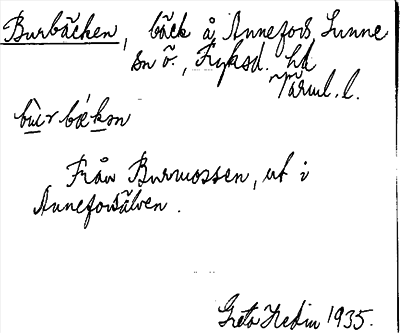 Burbäcken, bäck å Annefors, Sunne
sn ö., Fryksd. hd
Värml. l.
bu̲r bæ̀k̲ən
Från Burmossen, ut i
Anneforsälven.
Greta Hedin 1935.